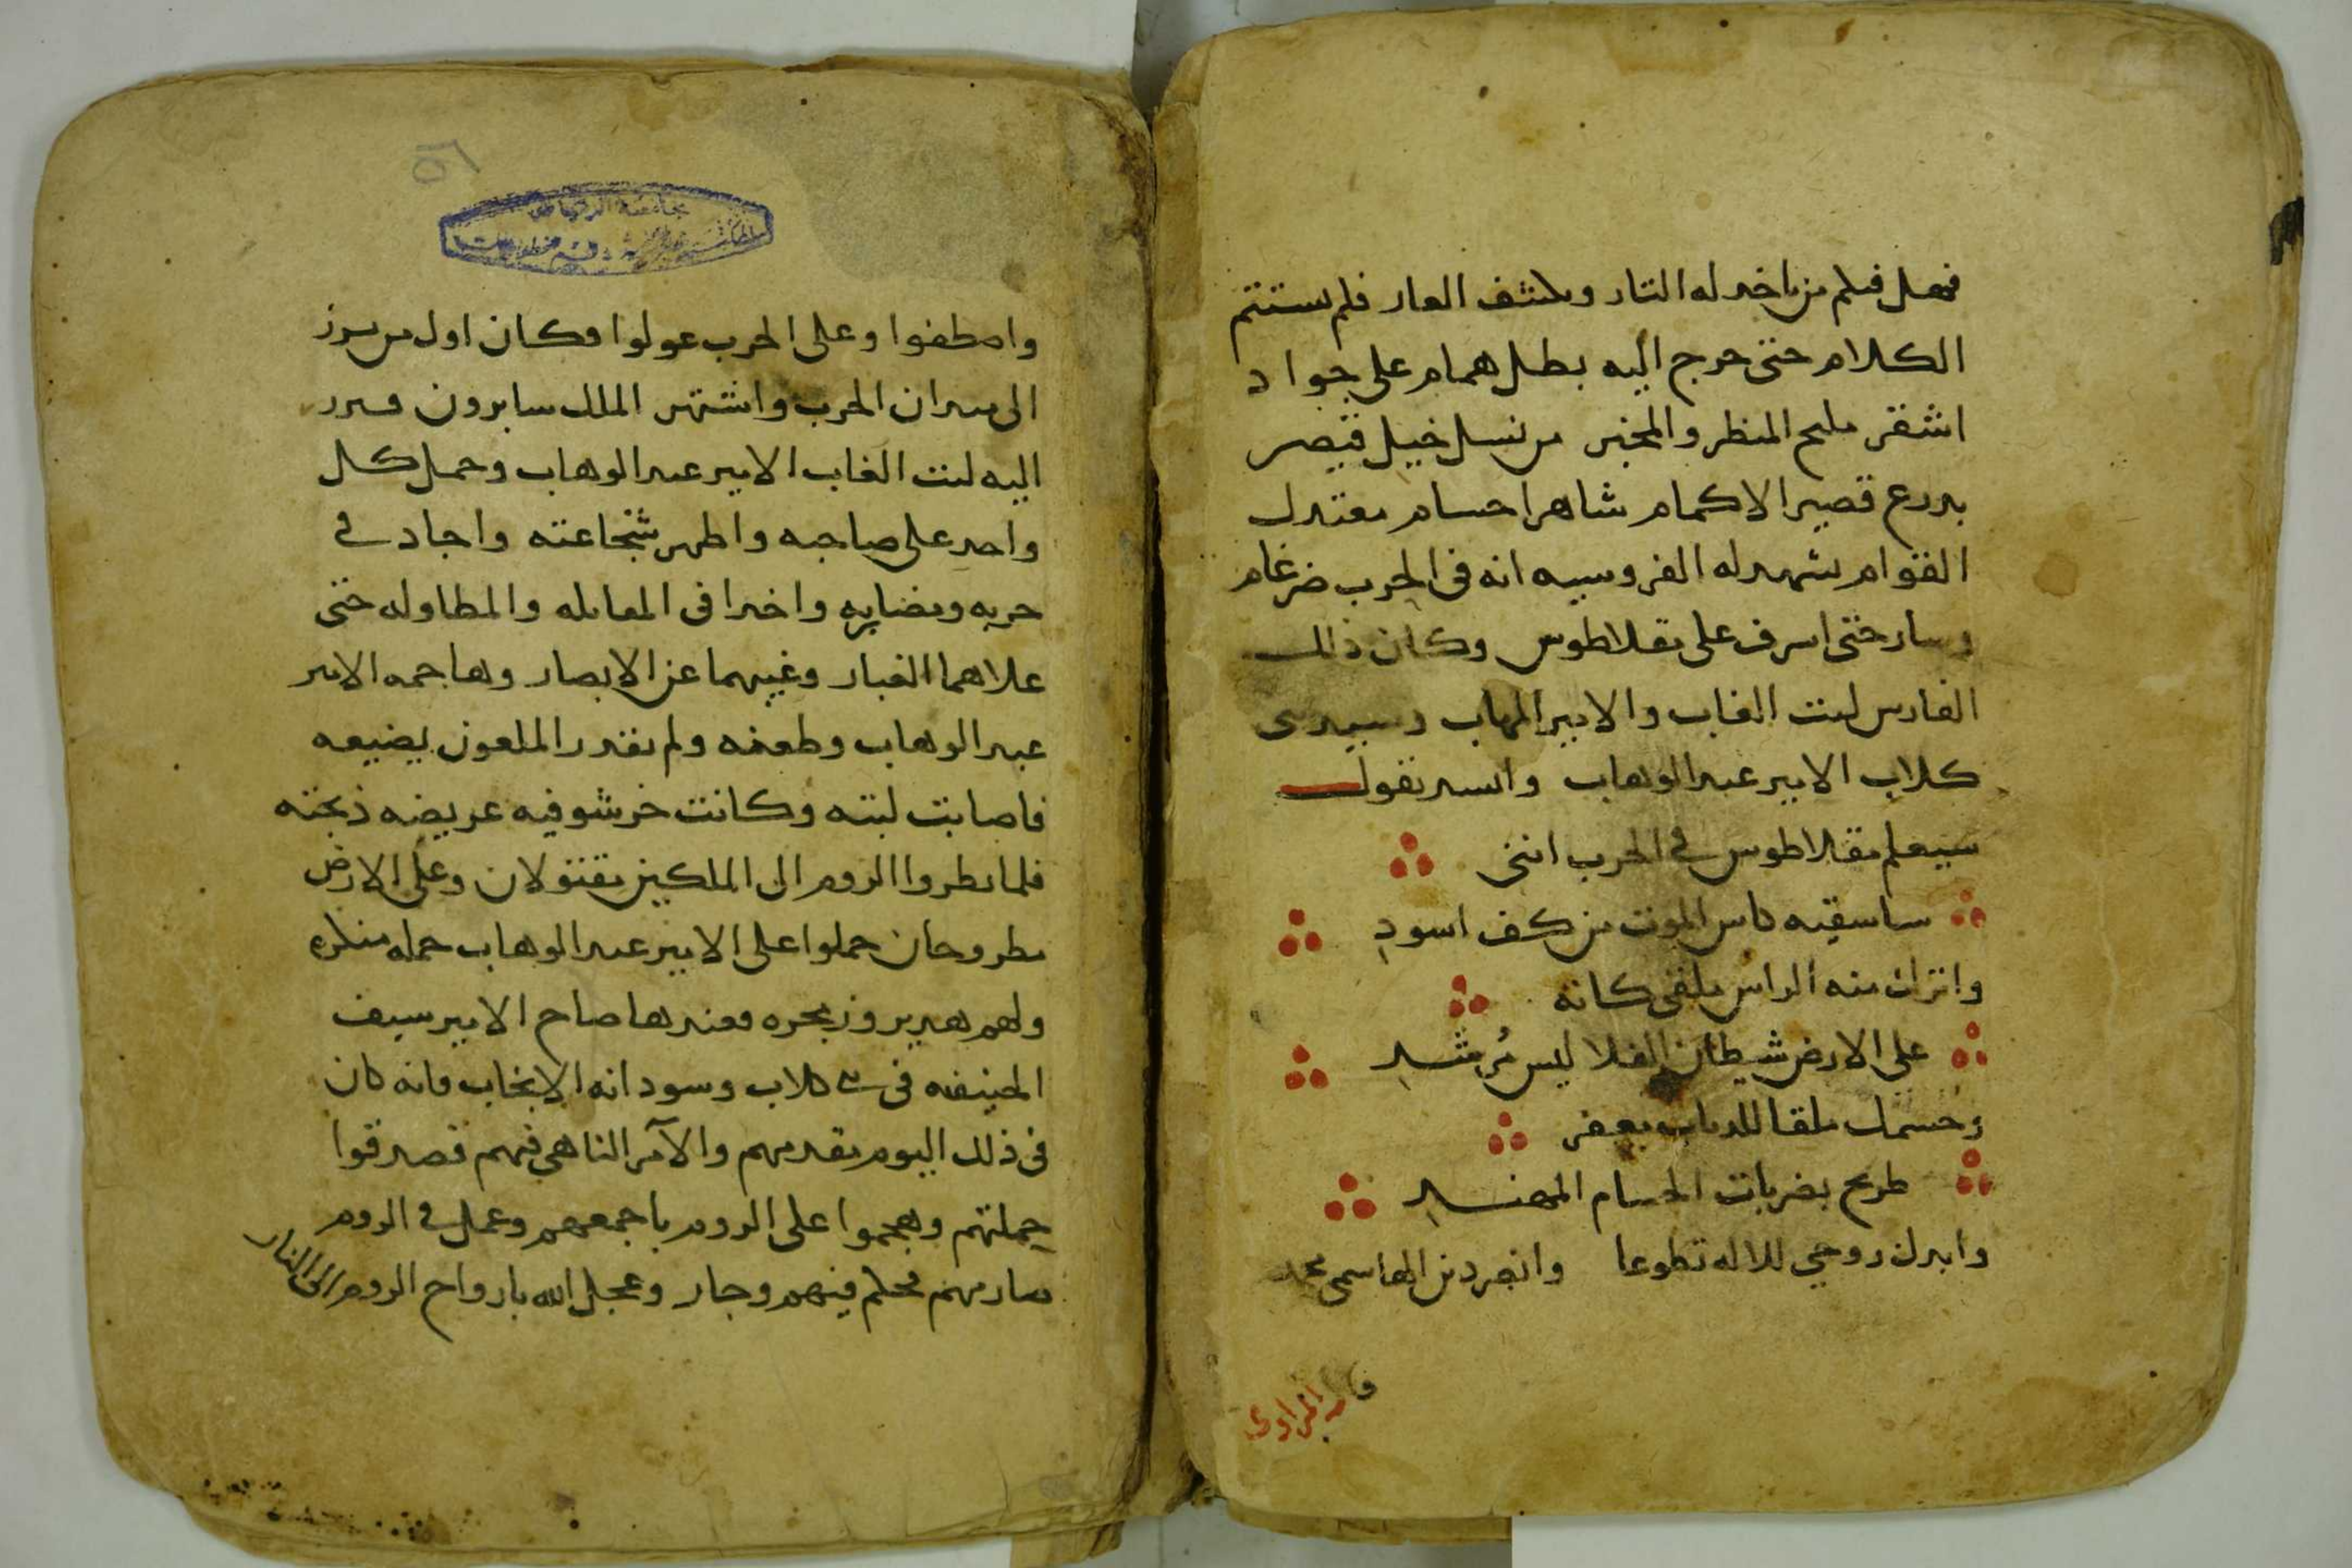 فهل فيكم من ياخد له التار ويكشف العار فلم يستتم
الكلام حتى خرج اليه بطل همام على جواد
اشقر مليح المنظر والمخبر من نسل خيل قيصر
بدرع قصير الاكمام شاهرا حسام معتدل
القوام يشهد له الفروسيه انه فى الحرب ضرغام
وسار حتى اشرف على مقلاطوس وكان ذالك
الفارس ليث الغاب والامير المهاب وسيد بنى
كلاب الامير عبد الوهاب وانشد يقول
سيعلم مقلاطوس في الحرب اننى
ساسقيه كاس الموت من كف اسودِ
واترك منه الراس ملقى كانه
على الارض شيطان الفلا ليس مُرشدِ
وجسمك ملقا للدياب معفر
طريح بضربات الحسام المهندِ
وابدل روحي للاله تطوعا وانصر دين الهاشمى محمد
قال الراوى
واصطفوا وعلى الحرب عولوا فكان اول من برز
الى ميدان الحرب واشتهر الملك سابرون فبرز
اليه ليث الغاب الامير عبد الوهاب وحمل كل
واحد على صاحبه واظهر شجاعته واجاد في
حربه ومضاربه واخدا فى المقابله والمطاوله حتى
علاهما الغبار وغيبهما عن الابصار وهاجمه الامير
عبد الوهاب وطعنه ولم يقدر الملعون يضيعه
فاصابت لبته وكانت خرشوفيه عريضه ذبحته
فلما نظروا الروم الى الملكين يقتولان وعلى الارض
مطروحان حملوا على الامير عبد الوهاب حمله منكره
ولهم هدير وزمجره فعندها صاح الامير سيف
الحنيفه فى بنى كلاب وسودانه الانجاب فانه كان
فى ذلك اليوم مقدمهم والآمر الناهي فيهم فصدقوا
حملتهم وهجموا على الروم باجمعهم وعمل في الروم
صارمهم فحكم فيهم وجار وعجل الله بارواح الروم الى النار
٥٦
جامعة الرياض
المكتبة المركزية قسم مخطوطات